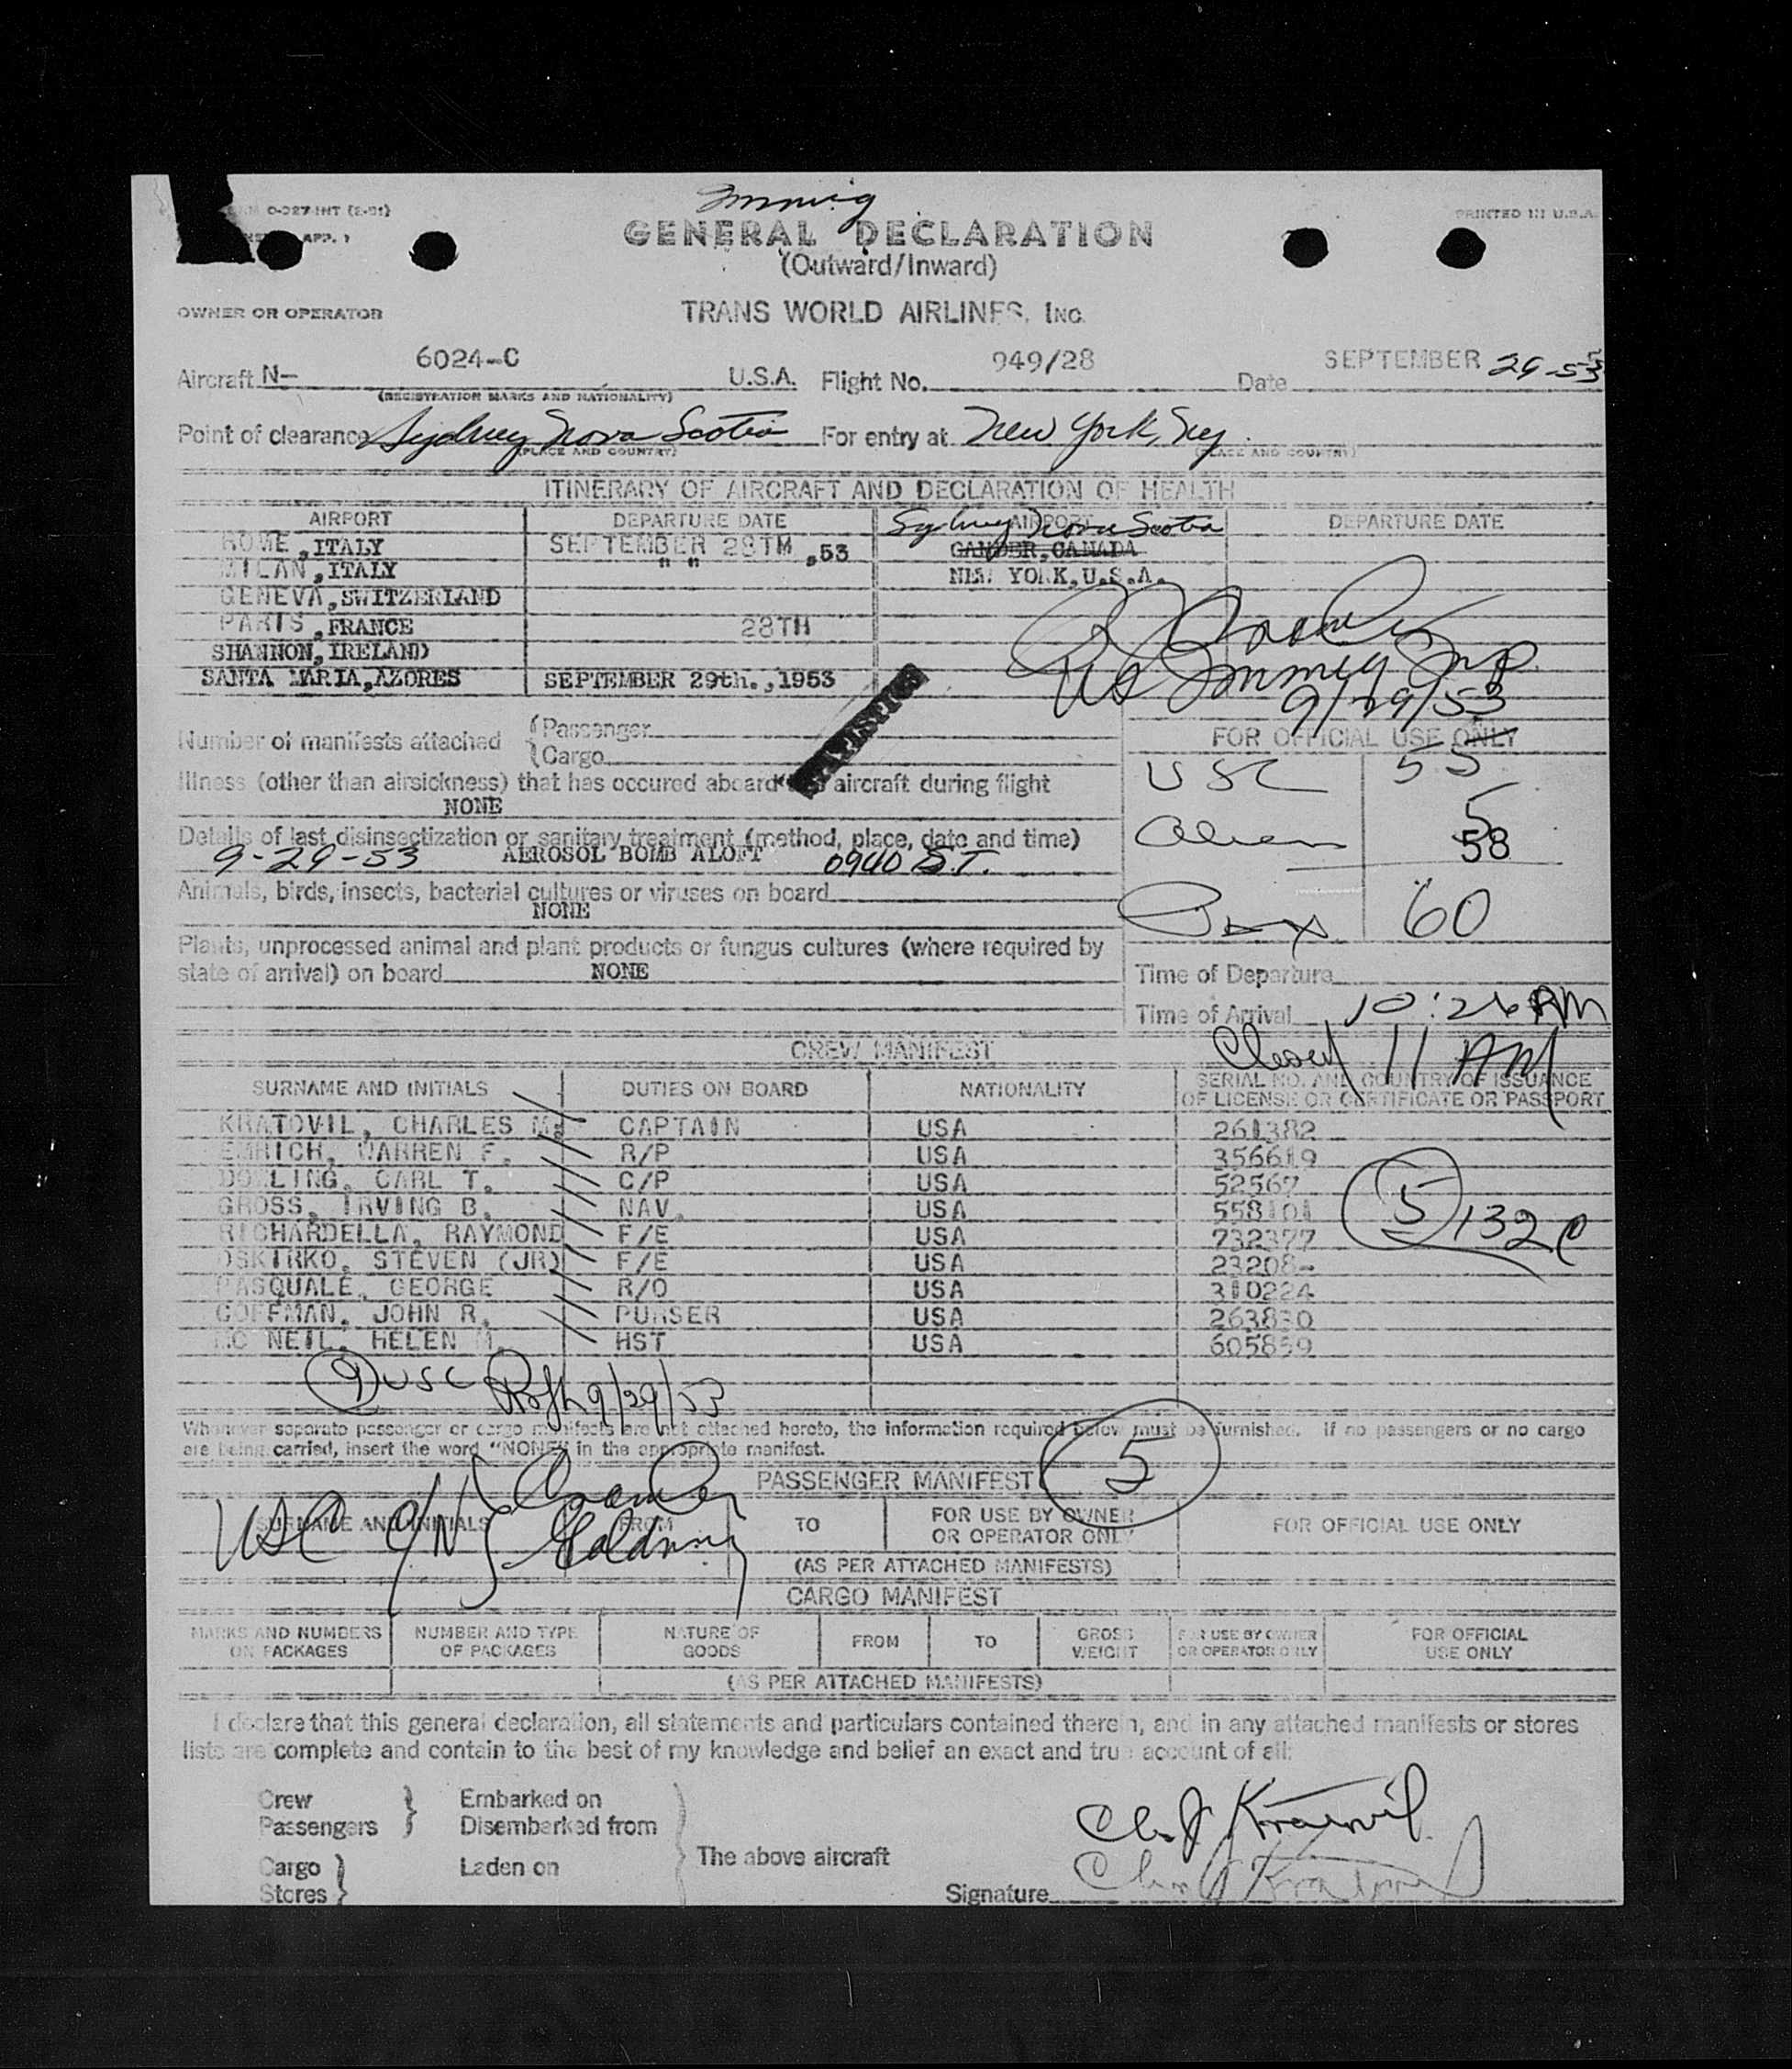 Immig
0-027-INT (2-51)
APP. 1
PRINTED IN U.S.A.
GENERAL DECLARATION
(Outward/Inward)
OWNER OR OPERATOR TRANS WORLD AIRLINES, INC.
Aircraft N- 6024-C U.S.A. Flight No. 949/28 Date SEPTEMBER 29-53
(REGISTRATION MARKS AND NATIONALITY)
Point of clearance Sydney Nova Scotia For entry at New York, Ny.
(PLACE AND COUNTRY) (PLACE AND COUNTRY)
ITINERARY OF AIRCRAFT AND DECLARATION OF HEALTH
AIRPORT DEPARTURE DATE AIRPORT DEPARTURE DATE
Sydney Nova Scotia
ROME, ITALY SEPTEMBER 28TH ,53 GANDER, CANADA
MILAN, ITALY " " NEW YORK, U.S.A.
GENEVA, SWITZERLAND
PARIS, FRANCE 28TH
SHANNON, IRELAND
SANTA MARIA, AZORES SEPTEMBER 29th., 1953
US Immig Insp.
9/29/53
Number of manifests attached
(Passenger
(Cargo
STATISTICS
Illness (other than airsickness) that has occured aboard aircraft during flight
NONE
Details of last disinsectization or sanitary treatment (method, place, date and time)
9-29-53 AEROSOL BOMB ALOFT 0940
Animals, birds, insects, bacterial cultures or viruses on board
NONE
Plants, unprocessed animal and plant products or fungus cultures (where required by
state of arrival) on board NONE
FOR OFFICIAL USE ONLY
USC 55
Alien 5
58
Pax 60
Time of Departure
Time of Arrival 10:26 AM
Closed 11 AM
CREW MANIFEST
SURNAME AND INITIALS DUTIES ON BOARD NATIONALITY SERIAL NO. AND COUNTRY OF ISSUANCE
OF LICENSE OR CERTIFICATE OR PASSPORT
KRATOVIL, CHARLES M. CAPTAIN USA 261382
EMRICH, WARREN F. R/P USA 356619
DOWLING, CARL T. C/P USA 52567
GROSS, IRVING B. NAV. USA 558101
RICHARDELLA, RAYMOND F/E USA 732377
OSKIRKO, STEVEN (JR) F/E USA 23208-
PASQUALE, GEORGE R/O USA 310224
GOFFMAN, JOHN R. PURSER USA 263830
MC NEIL, HELEN M. HST USA 605859
5 132
9 USC 9/29/53
Whenever separate passenger or cargo manifests are not attached hereto, the information required below must be furnished. If no passengers or no cargo
are being carried, insert the word "NONE" in the appropriate manifest.
PASSENGER MANIFEST 5
SURNAME AND INITIALS FROM TO FOR USE BY OWNER
OR OPERATOR ONLY FOR OFFICIAL USE ONLY
USC
(AS PER ATTACHED MANIFESTS)
CARGO MANIFEST
MARKS AND NUMBERS
ON PACKAGES NUMBER AND TYPE
OF PACKAGES NATURE OF
GOODS FROM TO GROSS
WEIGHT FOR USE BY OWNER
OR OPERATOR ONLY FOR OFFICIAL
USE ONLY
(AS PER ATTACHED MANIFESTS)
I declare that this general declaration, all statements and particulars contained therein, and in any attached manifests or stores
lists are complete and contain to the best of my knowledge and belief an exact and true account of all:
Crew Embarked on
Passengers Disembarked from
The above aircraft
Cargo Laden on
Stores
Signature